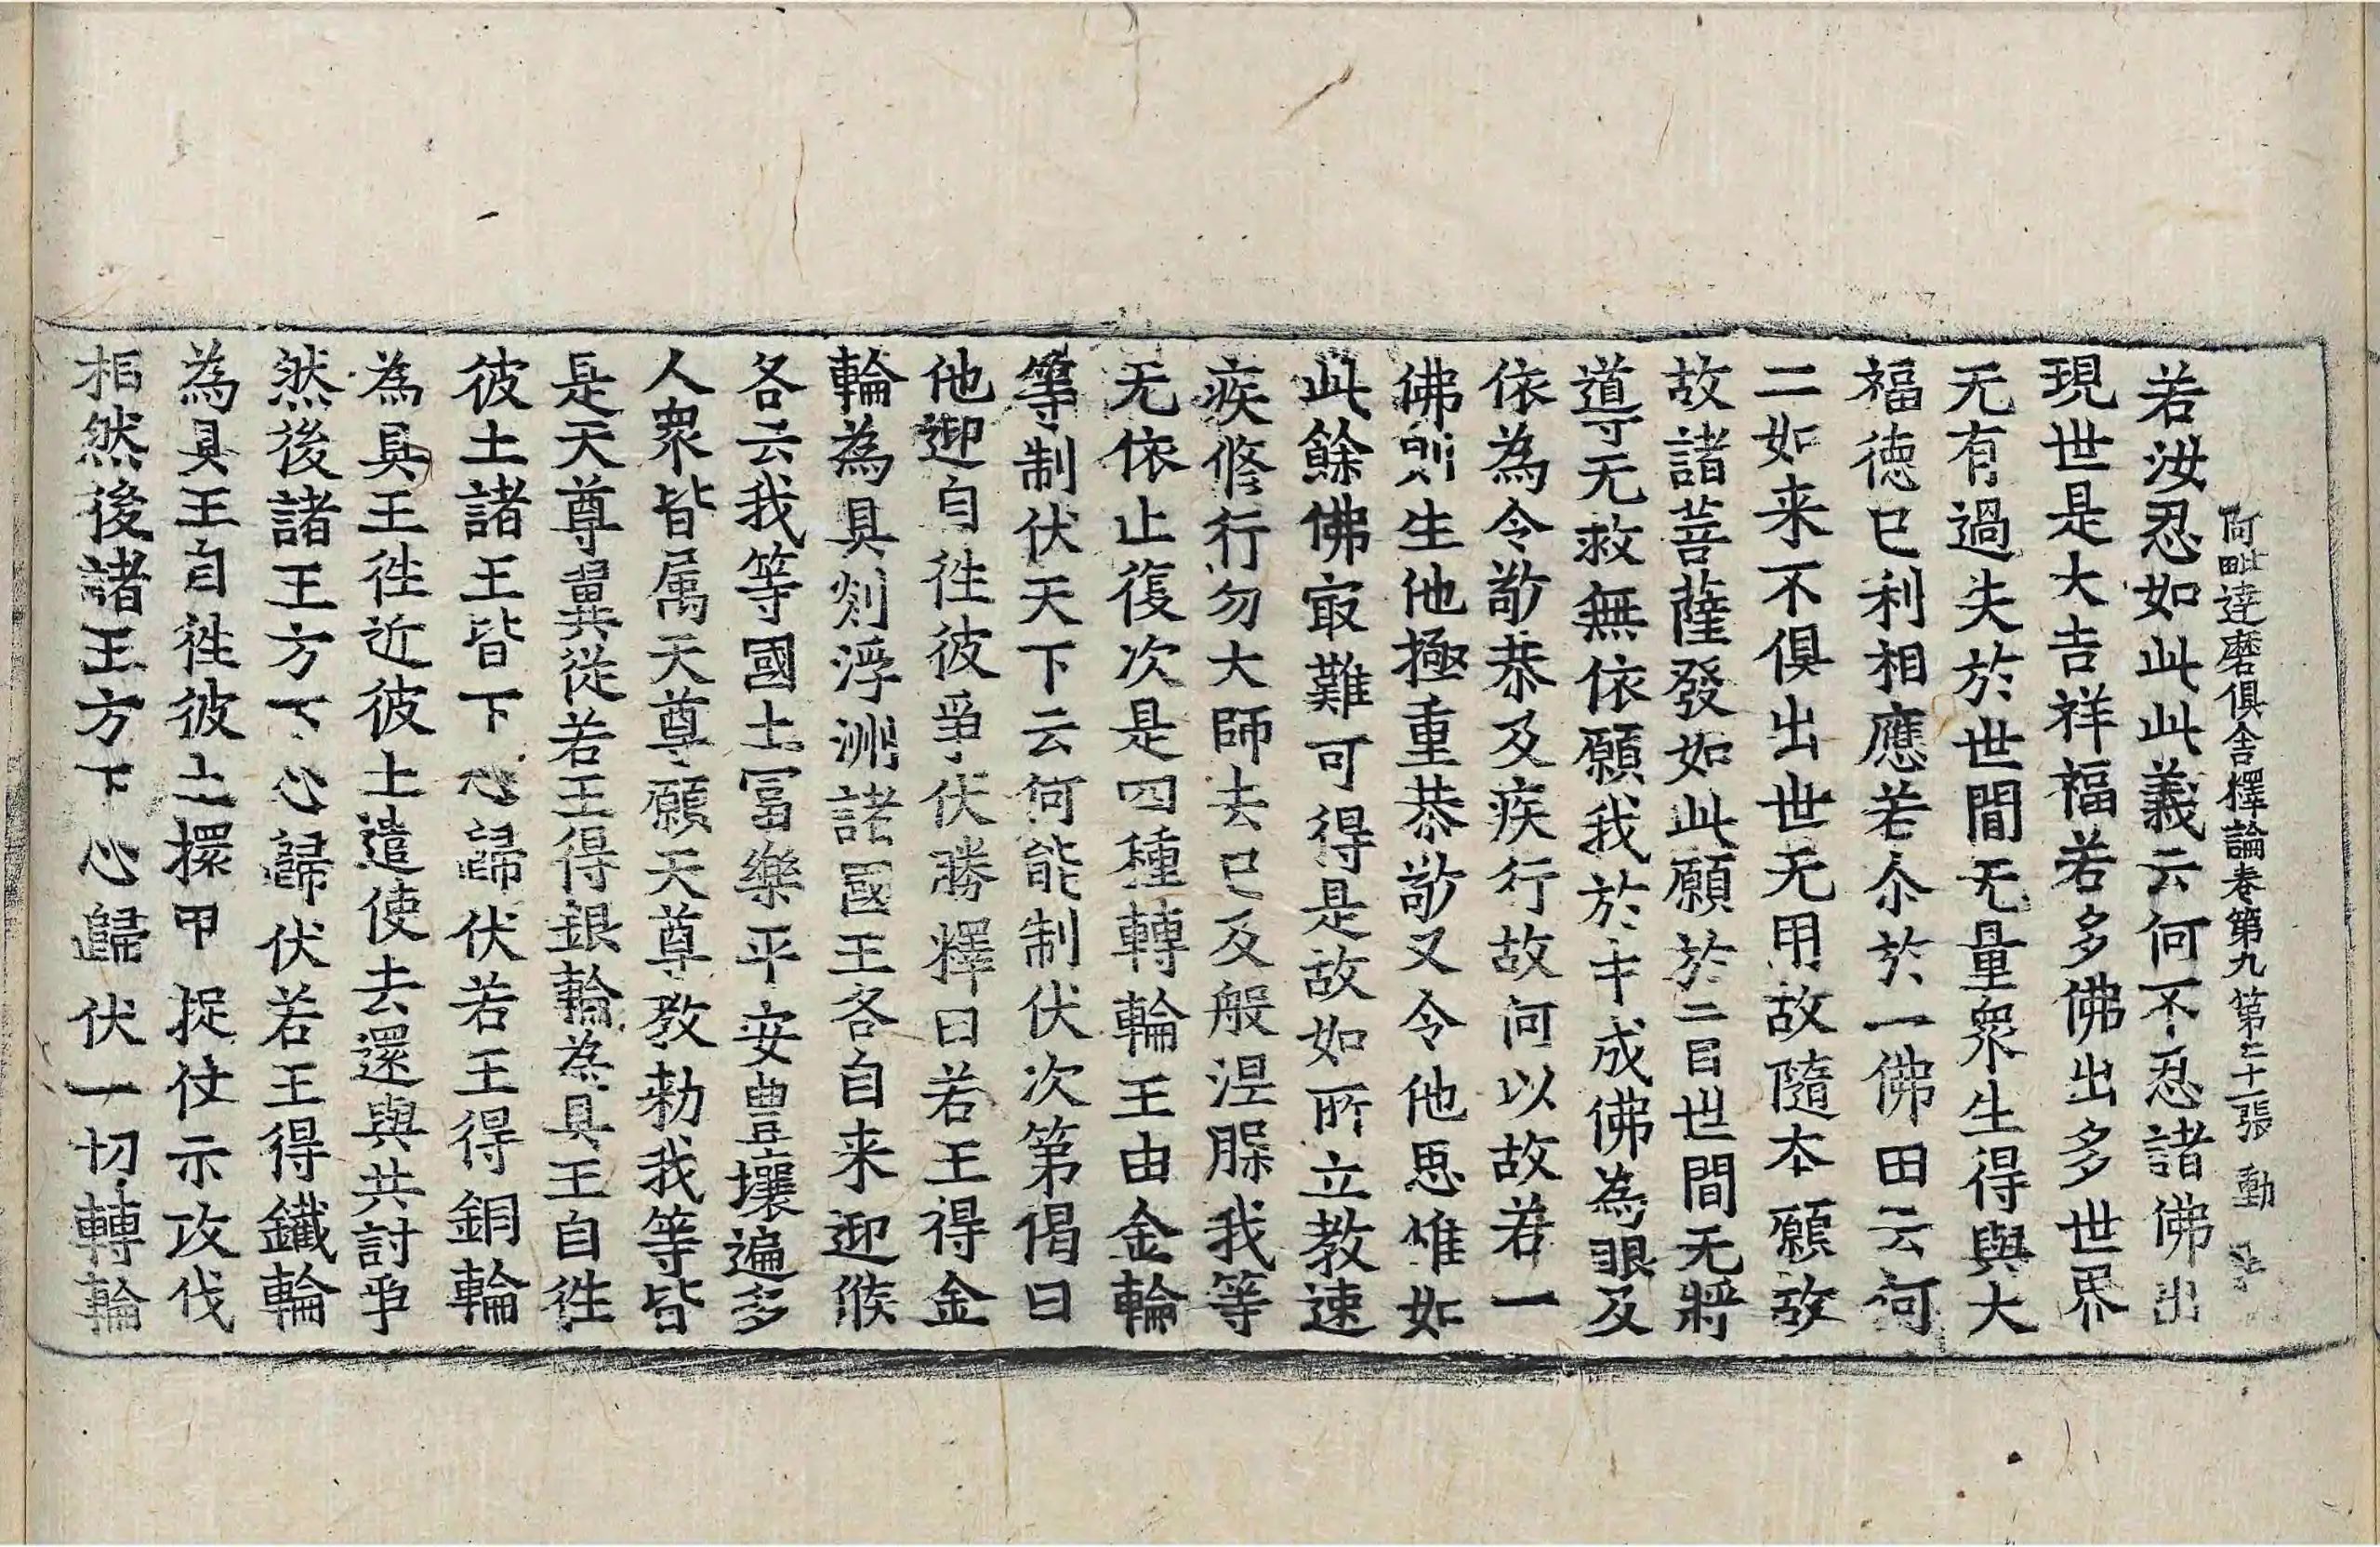 阿毗達磨俱舍釋論卷第九 第二十一張 動
若汝忍如此此義云何不忍諸佛出
現世是大吉祥福若多佛出多世界
无有過失於世間无量衆生得與大
福德已利相應若尒於一佛田云何
二如来不俱出世无用故隨本願故
故諸菩薩發如此願於二目世間无將
道等无救無依願我於中成佛為眼及
依為令敬恭及疾行故何以故若一
佛則生他極重恭敬又令他思惟如
此餘佛㝡難可得是故如所立教速
疾修行勿大師去已及般涅槃我等
无依止復次是四種轉輪王由金輪
等制伏天下云何能制伏次第偈曰
他迎自徃彼爭伏勝釋曰若王得金
輪為具剡浮洲諸國王各自来迎候
各云我等國土冨樂平安豊壤遍多
人衆皆属天尊願天尊教勑我等皆
是天尊翼從若王得銀輪為具王自徃
彼土諸王皆下心歸伏若王得銅輪
為具王徃近彼土遣使去還與共討爭
然後諸王方下心歸伏若王得鐵輪
為具王自徃彼土擐甲捉仗示攻伐
相然後諸王方下心歸伏一切轉輪